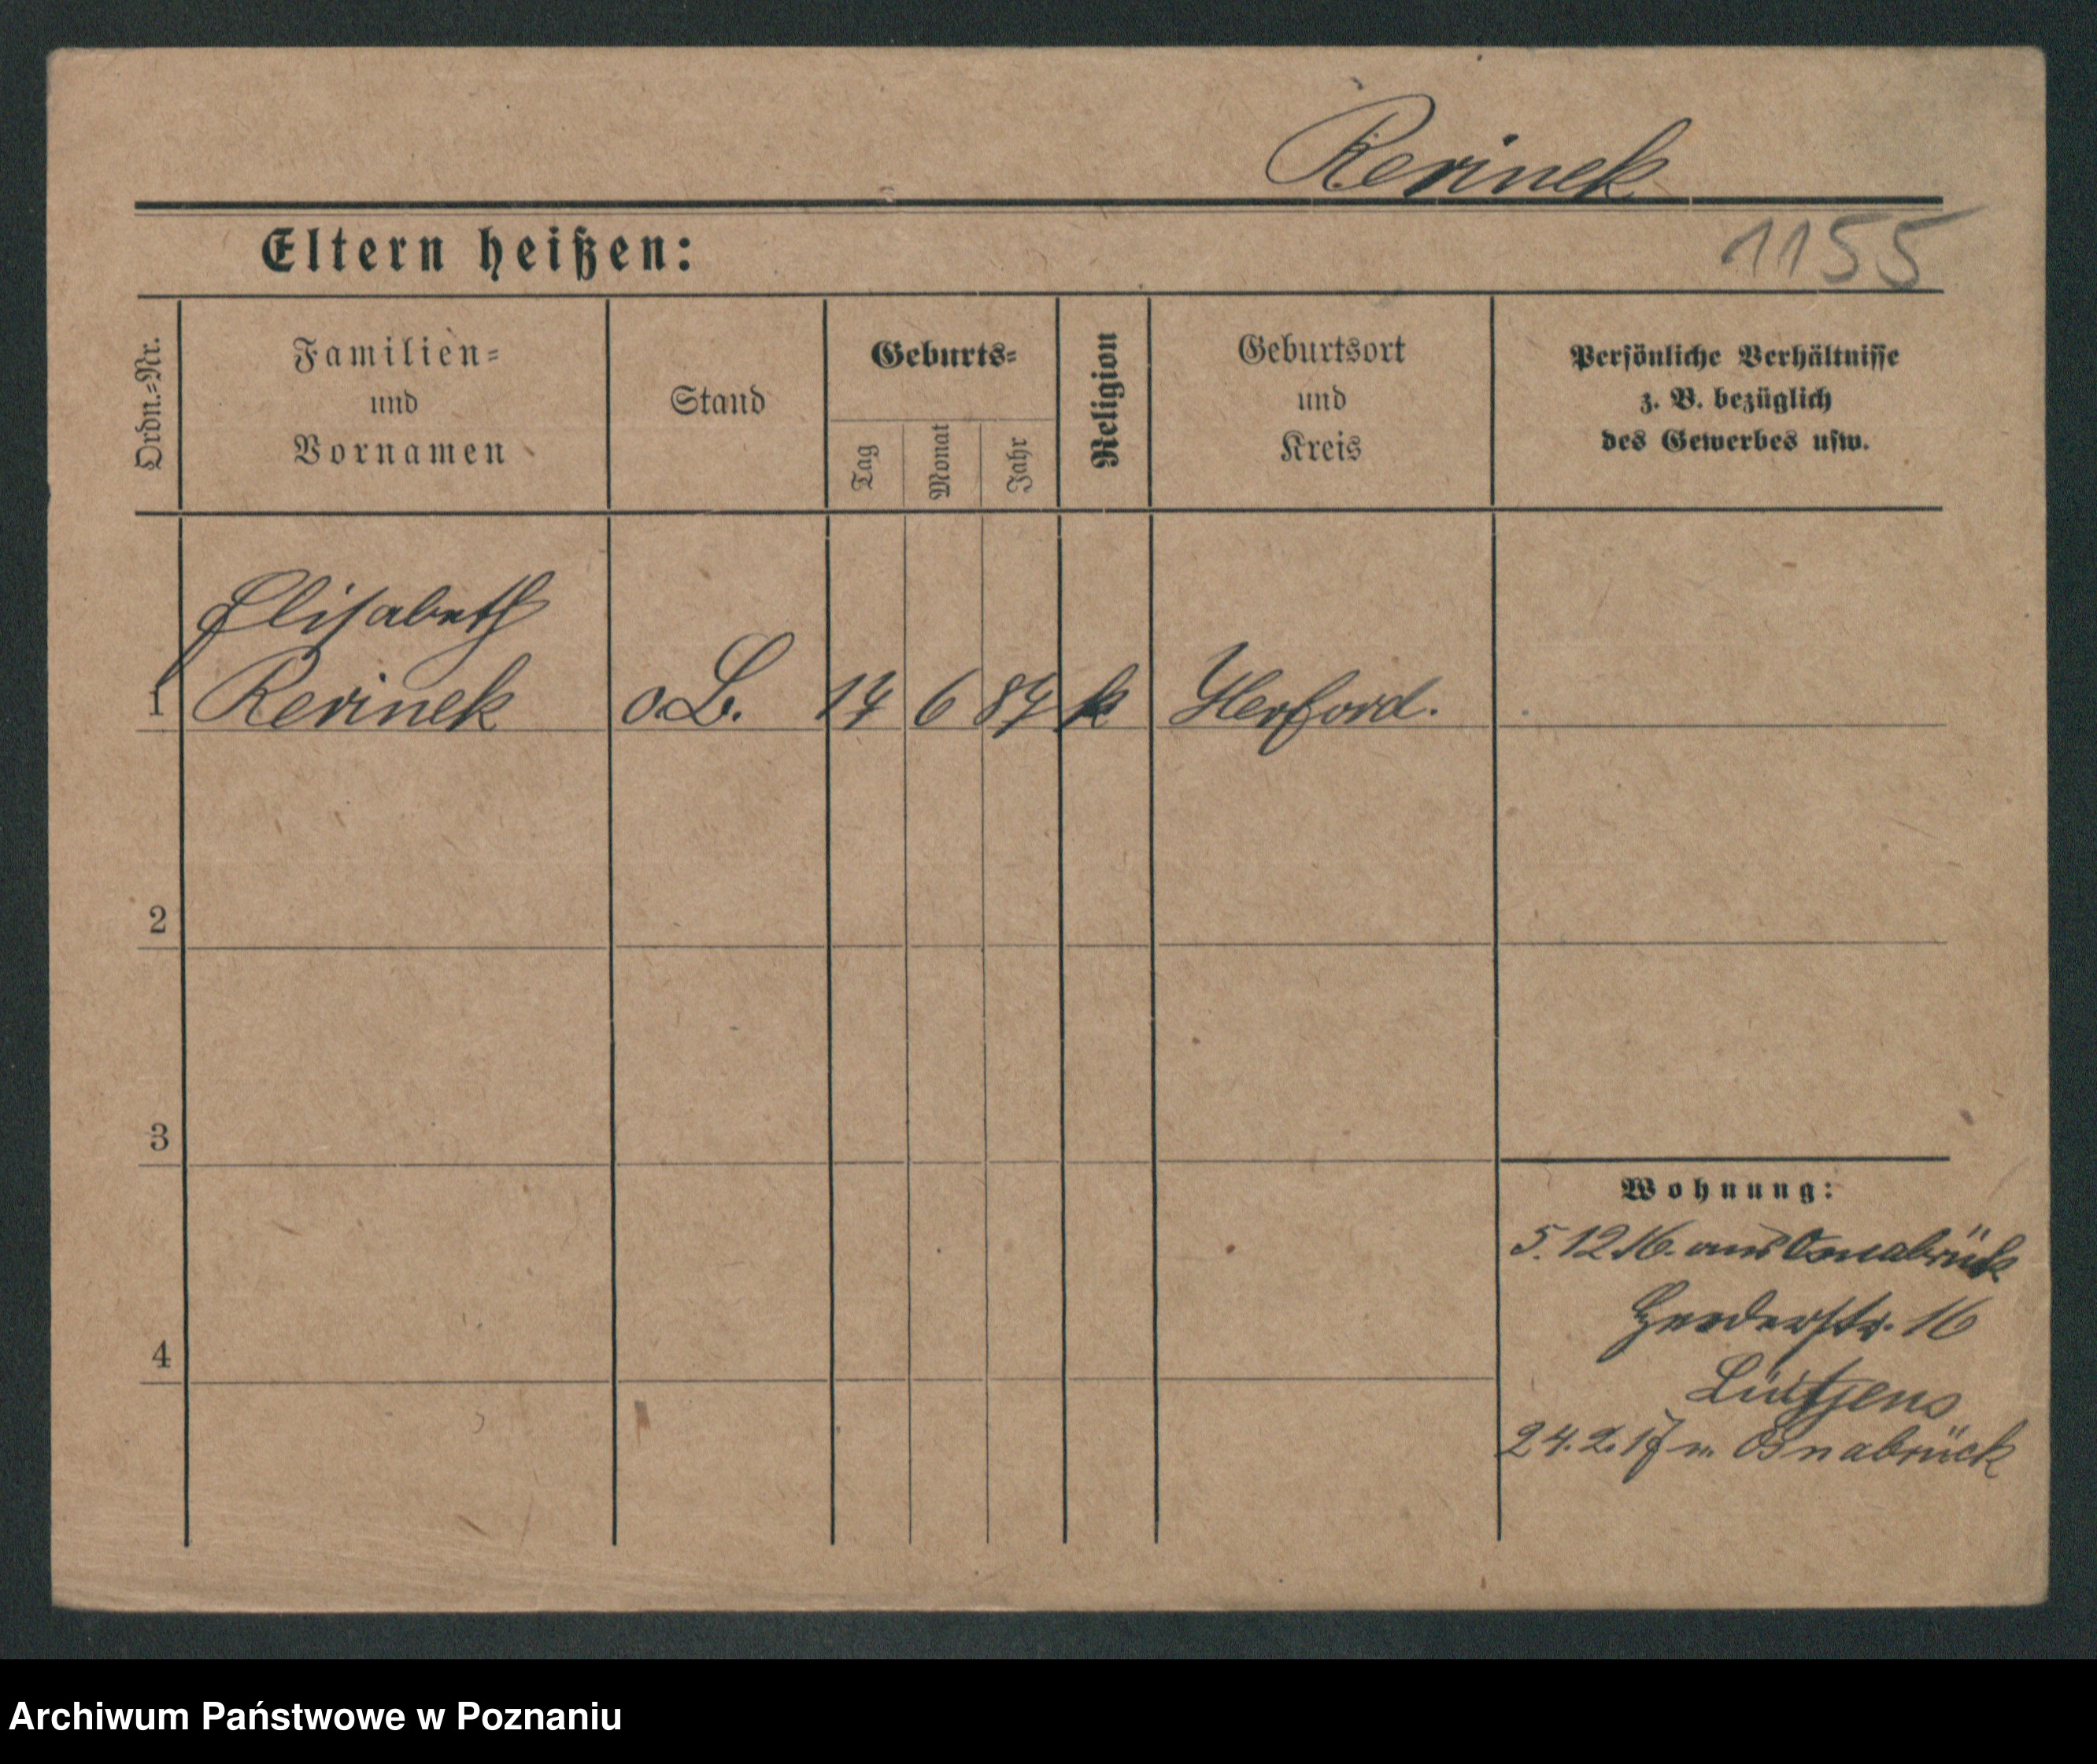 Rerinek
Eltern heißen:
1155
Ordn.=Nr.
Familien=
und
Vornamen
Stand
Geburts=
Tag
Monat
Jahr
Religion
Geburtsort
und
Kreis
Persönliche Verhältnisse
z. B. bezüglich
des Gewerbes usw.
Elisabeth
1 Rerinek o.B. 14 6 87 k Herford.
2
3
4
Wohnung:
5.12.16. aus Osnabrück
Herderstr. 16
Lütjens
24.2.17 n. Osnabrück
Archiwum Państwowe w Poznaniu